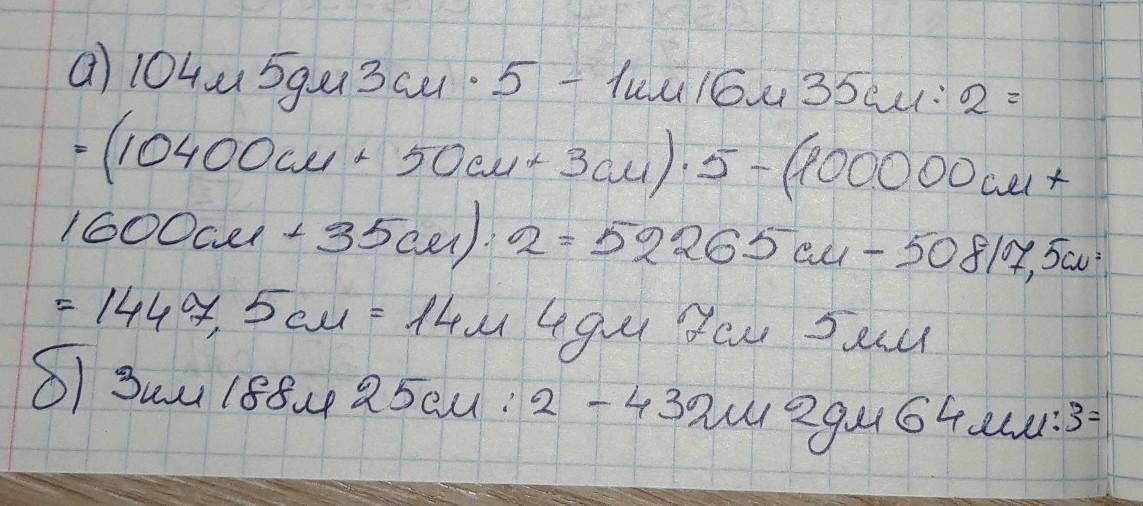 а) 104м 5дм 3см · 5 - 1км 16м 35см : 2 =
= (10400см + 50см + 3см) · 5 - (100000см +
1600см + 35см) : 2 = 52265см - 50817,5см =
= 1447,5см = 14м 4дм 7см 5мм
б) 3км 188м 25см : 2 - 432м 2дм 64мм : 3 =